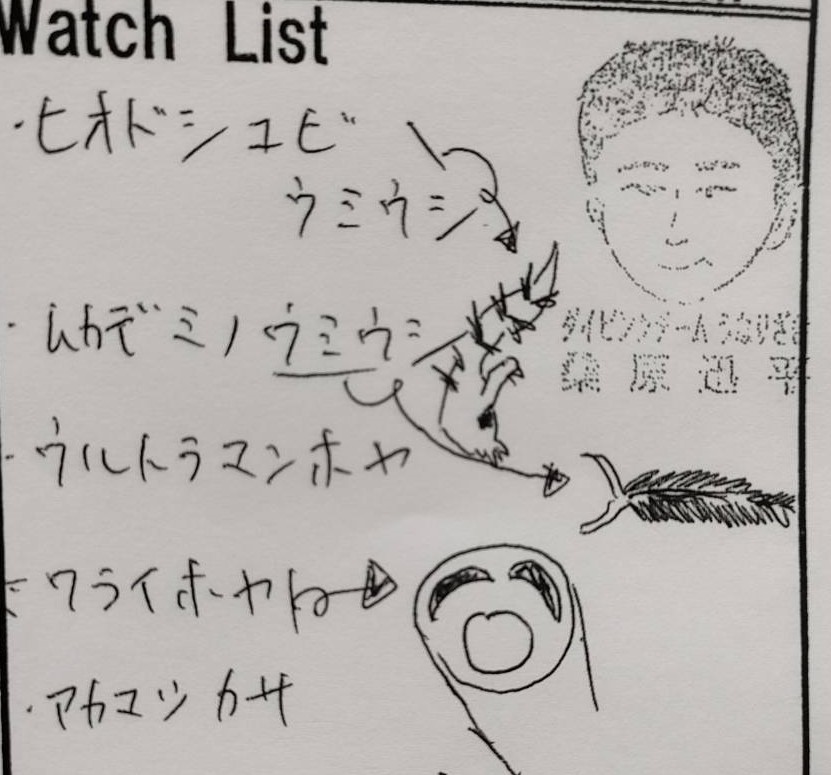 Watch List
・ヒオドシユビ
ウミウシ
・ムカデミノウミウシ
・ウルトラマンホヤ
ワライホヤ
・アカマツカサ
ダイビングチームうなりざき
桑原迅平